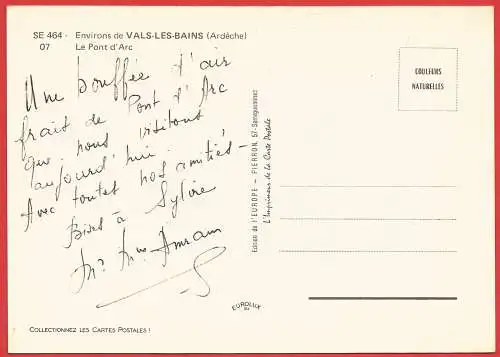 SE 464 - Environs de VALS-LES-BAINS (Ardèche)
07 Le Pont d'Arc
Une bouffée d'air
frais de Pont d'Arc
que nous visitons
aujourd'hui.
Avec toutes nos amitiés -
Bises à Sylvie
Mr Mme
COULEURS
NATURELLES
Edition de l'EUROPE - PIERRON, 57-Sarreguemines
L'Imprimeur de la Carte Postale
EUROLUX
COLLECTIONNEZ LES CARTES POSTALES !